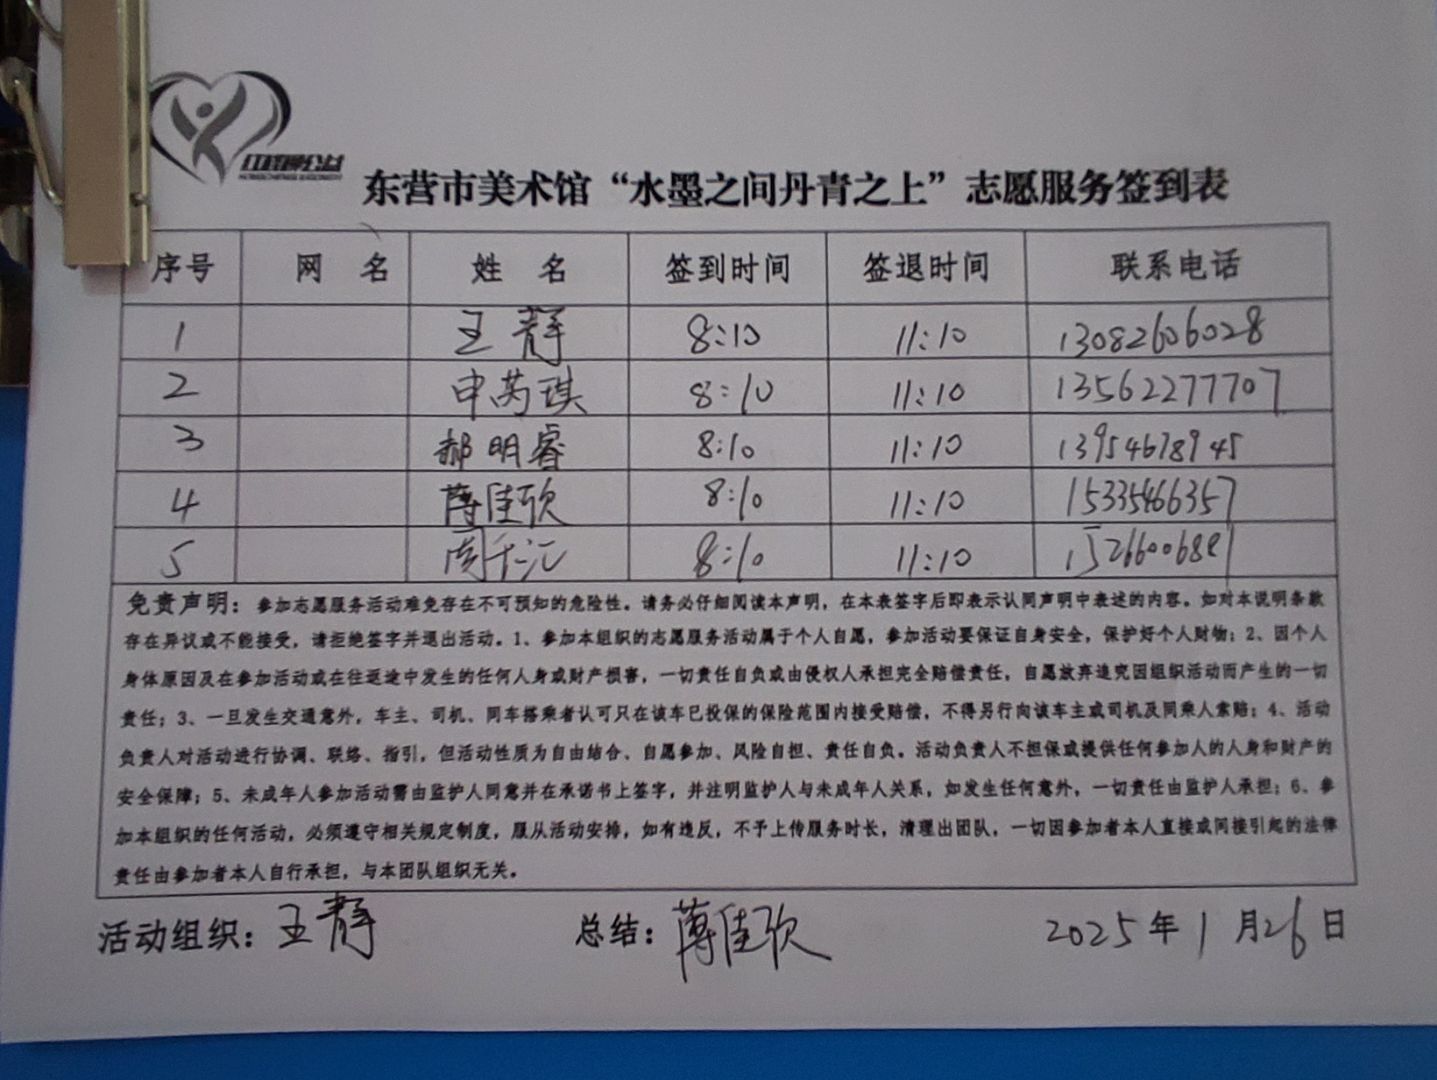 红成林公益
东营市美术馆“水墨之间丹青之上”志愿服务签到表
序号 网 名 姓 名 签到时间 签退时间 联系电话
1 王静 8:10 11:10 13082606028
2 申芮琪 8:10 11:10 13562277707
3 郝明睿 8:10 11:10 13954678945
4 薄佳欣 8:10 11:10 15335466357
5 8:10 11:10
免责声明：参加志愿服务活动难免存在不可预知的危险性。请务必仔细阅读本声明，在本表签字后即表示认同声明中表述的内容。如对本说明条款
存在异议或不能接受，请拒绝签字并退出活动。1、参加本组织的志愿服务活动属于个人自愿，参加活动要保证自身安全，保护好个人财物；2、因个人
身体原因及在参加活动或在往返途中发生的任何人身或财产损害，一切责任自负或由侵权人承担完全赔偿责任，自愿放弃追究因组织活动而产生的一切
责任；3、一旦发生交通意外，车主、司机、同车搭乘者认可只在该车已投保的保险范围内接受赔偿，不得另行向该车主或司机及同乘人索赔；4、活动
负责人对活动进行协调、联络、指引，但活动性质为自由结合、自愿参加、风险自担、责任自负。活动负责人不担保或提供任何参加人的人身和财产的
安全保障；5、未成年人参加活动需由监护人同意并在承诺书上签字，并注明监护人与未成年人关系，如发生任何意外，一切责任由监护人承担；6、参
加本组织的任何活动，必须遵守相关规定制度，服从活动安排，如有违反，不予上传服务时长，清理出团队，一切因参加者本人直接或间接引起的法律
责任由参加者本人自行承担，与本团队组织无关。
活动组织：王静 总结：薄佳欣 2025年1月26日